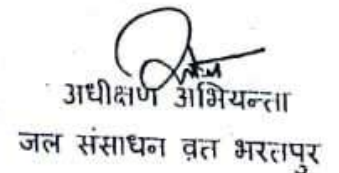 अधीक्षण अभियन्ता
जल संसाधन व्रत भरतपुर